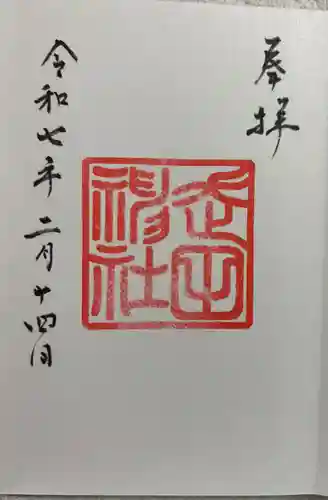 奉拝
令和七年二月十四日